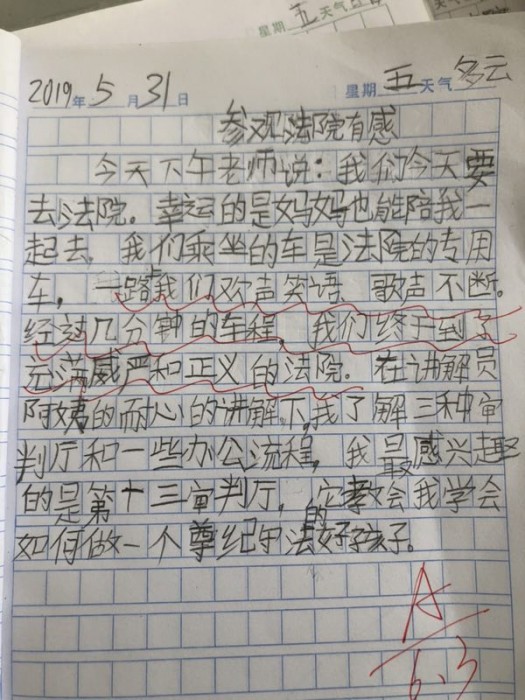 星期 五 天气
2019年 5 月 31 日 星期 五 天气 多云
参观法院有感
今天下午老师说：我们今天要
去法院。幸运的是妈妈也能陪我一
起去。我们乘坐的车是法院的专用
车，一路我们欢声笑语、歌声不断。
经过几分钟的车程，我们终于到了
充满威严和正义的法院。在讲解员
阿姨的耐心的讲解下,我了解三种审
判厅和一些办公流程，我最感兴趣
的是第十三审判厅，它教会我学会
如何做一个尊纪守法的好孩子。
A
6.3